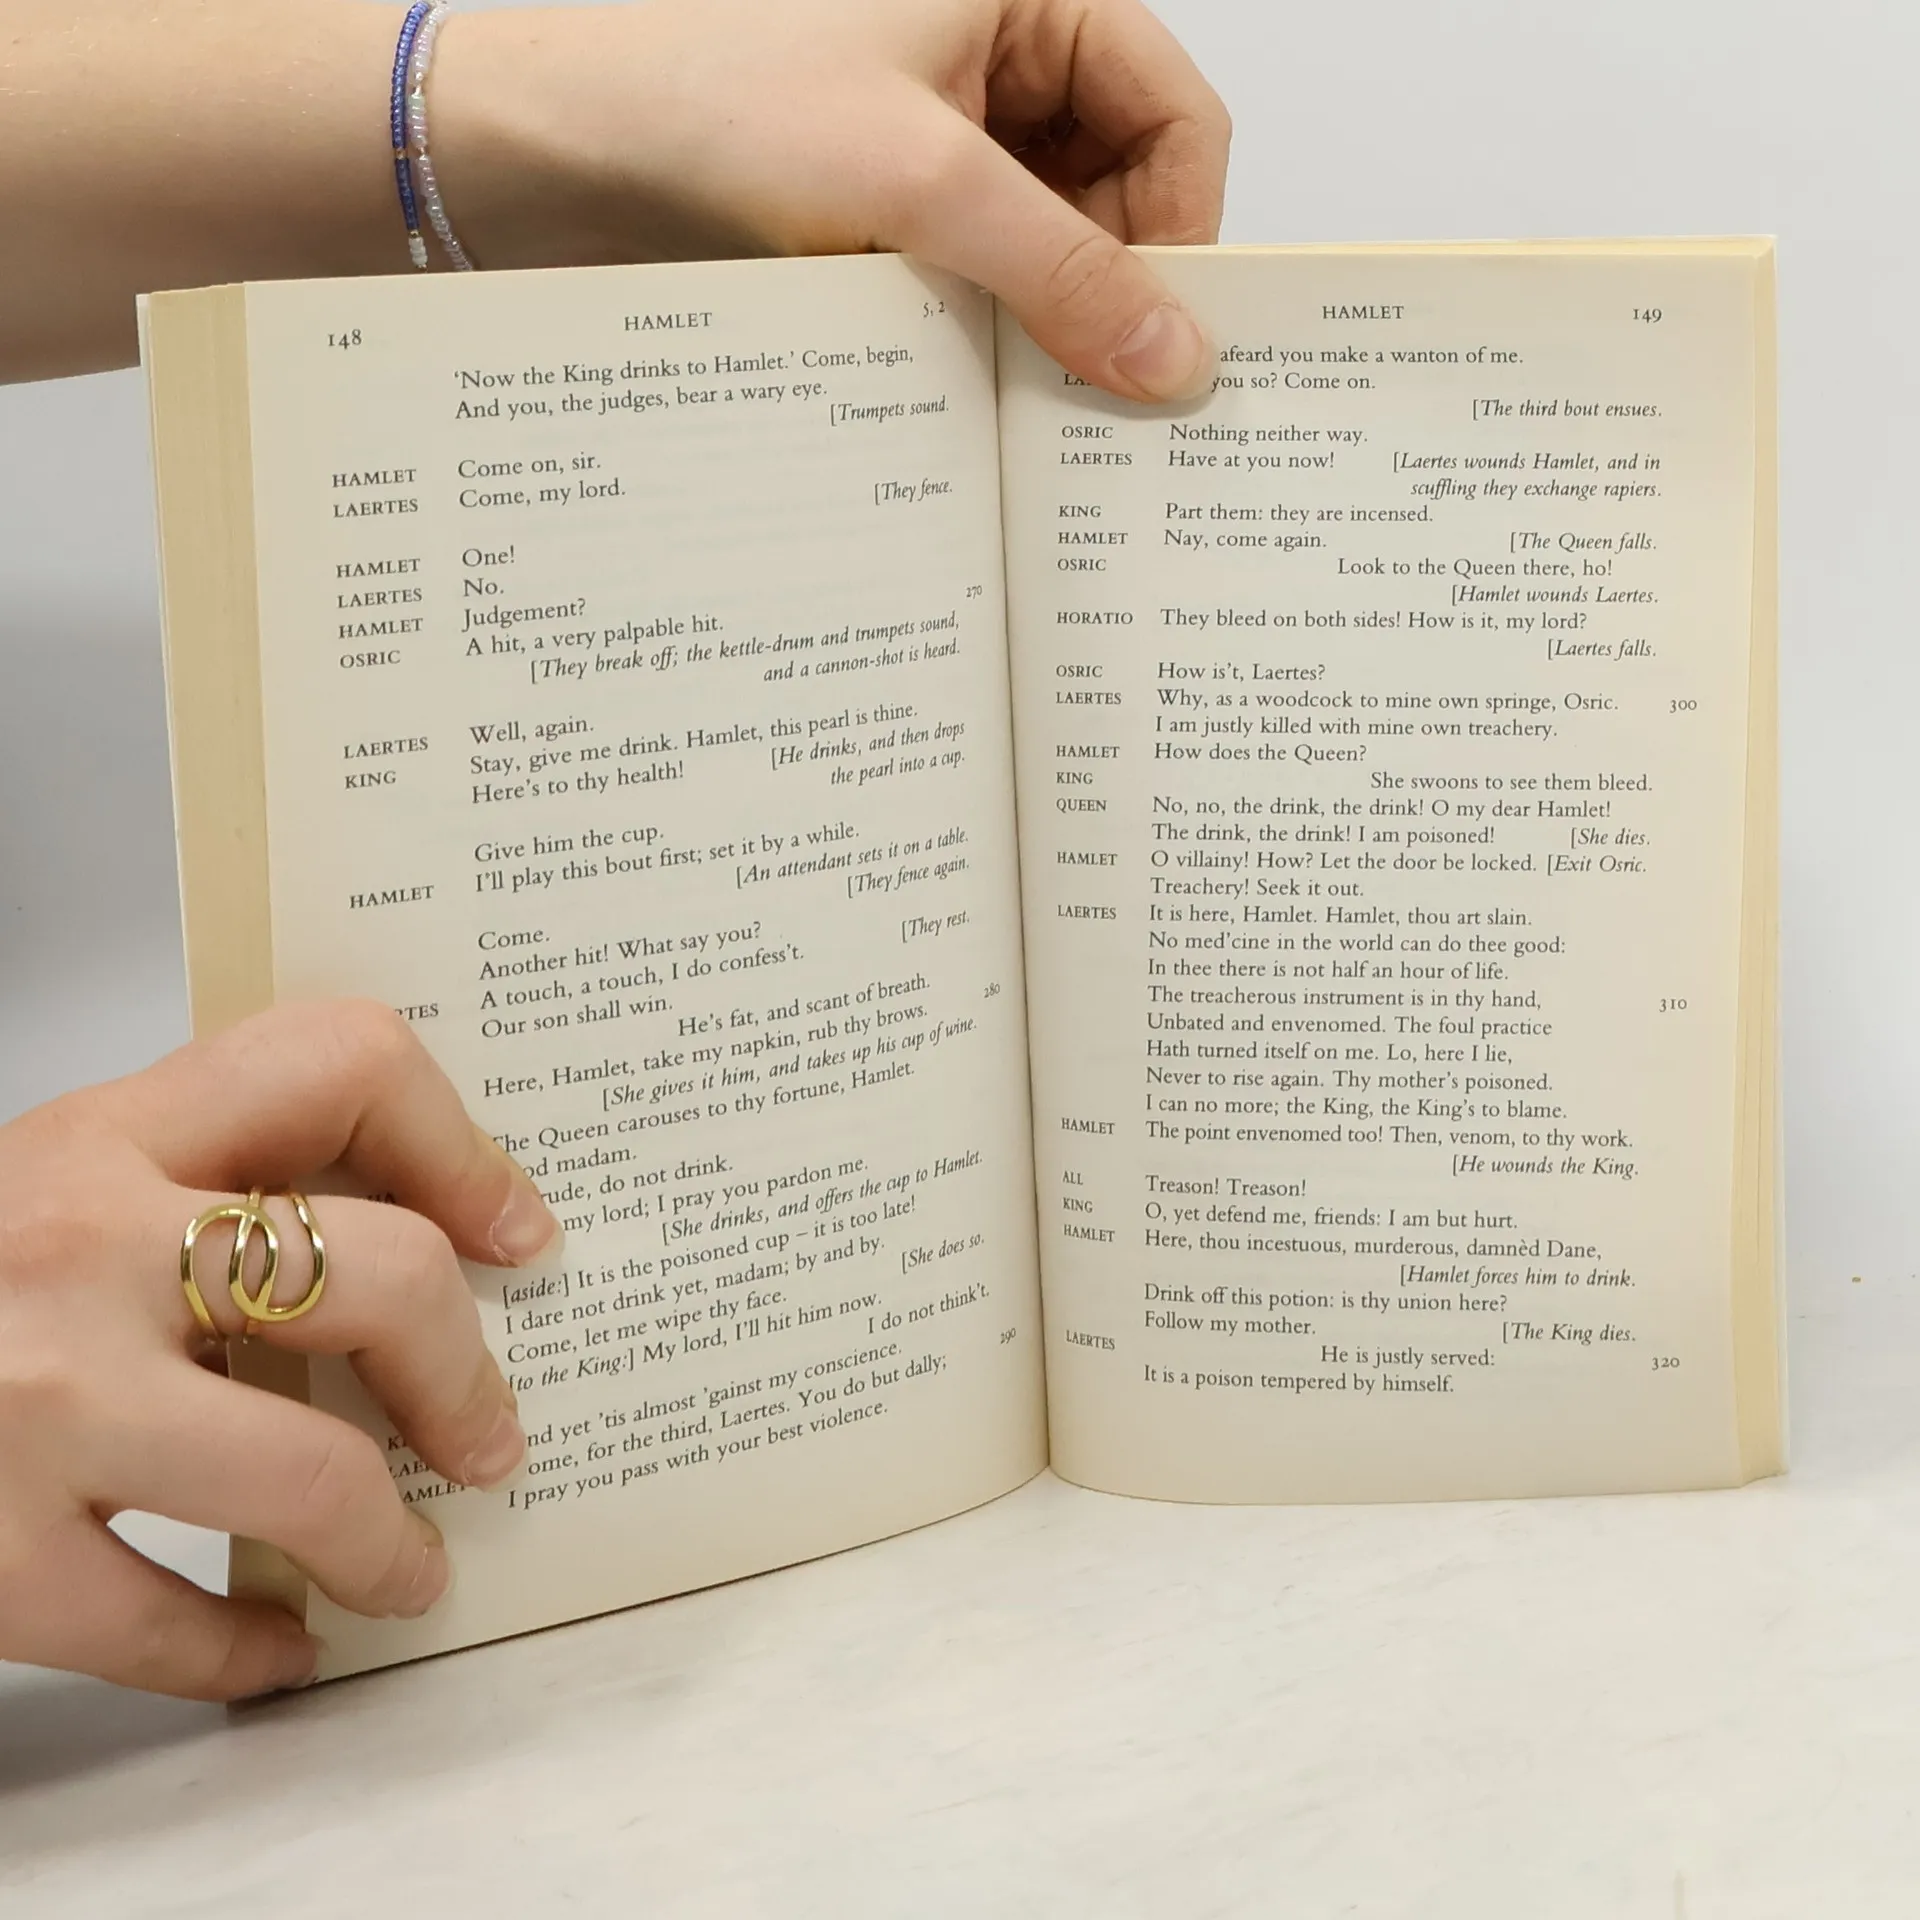 148 HAMLET 5, 2
‘Now the King drinks to Hamlet.’ Come, begin,
And you, the judges, bear a wary eye.
[Trumpets sound.
HAMLET Come on, sir.
LAERTES Come, my lord. [They fence.
HAMLET One!
LAERTES No.
HAMLET Judgement?
OSRIC A hit, a very palpable hit. 270
[They break off; the kettle-drum and trumpets sound,
and a cannon-shot is heard.
LAERTES Well, again.
KING Stay, give me drink. Hamlet, this pearl is thine.
Here’s to thy health! [He drinks, and then drops
the pearl into a cup.
Give him the cup.
HAMLET I’ll play this bout first; set it by a while.
[An attendant sets it on a table.
[They fence again.
Come.
Another hit! What say you? [They rest.
RTES A touch, a touch, I do confess’t.
Our son shall win.
He’s fat, and scant of breath. 280
Here, Hamlet, take my napkin, rub thy brows.
[She gives it him, and takes up his cup of wine.
The Queen carouses to thy fortune, Hamlet.
od madam.
rude, do not drink.
my lord; I pray you pardon me.
[She drinks, and offers the cup to Hamlet.
[aside:] It is the poisoned cup – it is too late!
I dare not drink yet, madam; by and by.
Come, let me wipe thy face. [She does so.
[to the King:] My lord, I’ll hit him now.
I do not think’t.
nd yet ’tis almost ’gainst my conscience. 290
ome, for the third, Laertes. You do but dally;
AMLET I pray you pass with your best violence.
HAMLET 149
afeard you make a wanton of me.
you so? Come on.
[The third bout ensues.
OSRIC Nothing neither way.
LAERTES Have at you now! [Laertes wounds Hamlet, and in
scuffling they exchange rapiers.
KING Part them: they are incensed.
HAMLET Nay, come again. [The Queen falls.
OSRIC Look to the Queen there, ho!
[Hamlet wounds Laertes.
HORATIO They bleed on both sides! How is it, my lord?
[Laertes falls.
OSRIC How is’t, Laertes?
LAERTES Why, as a woodcock to mine own springe, Osric. 300
I am justly killed with mine own treachery.
HAMLET How does the Queen?
KING She swoons to see them bleed.
QUEEN No, no, the drink, the drink! O my dear Hamlet!
The drink, the drink! I am poisoned! [She dies.
HAMLET O villainy! How? Let the door be locked. [Exit Osric.
Treachery! Seek it out.
LAERTES It is here, Hamlet. Hamlet, thou art slain.
No med’cine in the world can do thee good:
In thee there is not half an hour of life.
The treacherous instrument is in thy hand, 310
Unbated and envenomed. The foul practice
Hath turned itself on me. Lo, here I lie,
Never to rise again. Thy mother’s poisoned.
I can no more; the King, the King’s to blame.
HAMLET The point envenomed too! Then, venom, to thy work.
[He wounds the King.
ALL Treason! Treason!
KING O, yet defend me, friends: I am but hurt.
HAMLET Here, thou incestuous, murderous, damnèd Dane,
[Hamlet forces him to drink.
Drink off this potion: is thy union here?
Follow my mother. [The King dies.
LAERTES He is justly served: 320
It is a poison tempered by himself.